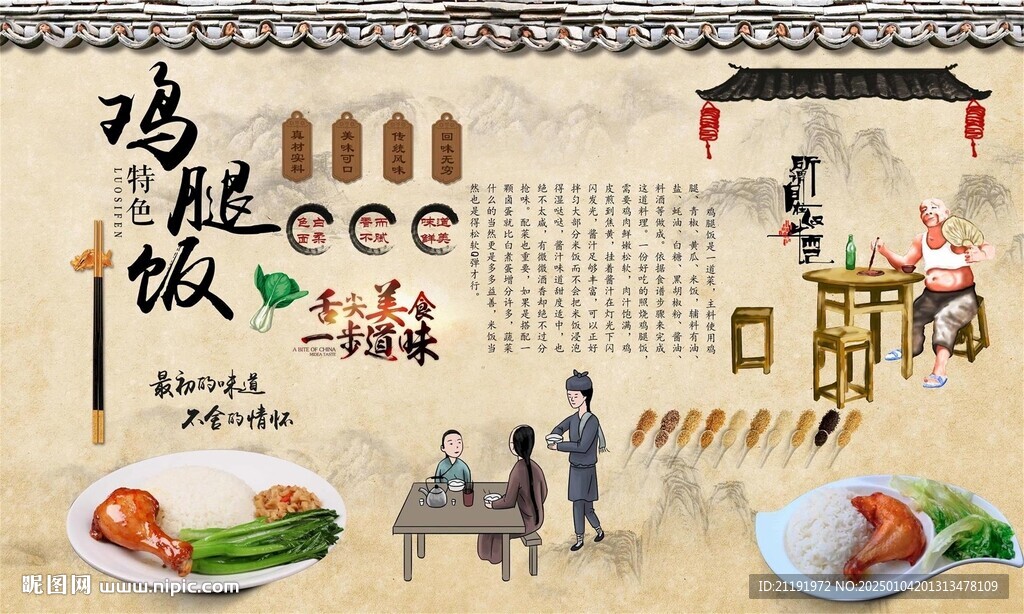 鸡腿饭
特色
LUOSIFEN
真材实料
美味可口
传统风味
回味无穷
色白
面柔
香而
不腻
味道
鲜美
舌尖美食
一步道味
A BITE OF CHINA
最初的味道
不舍的情怀
鸡腿饭是一道菜，主料使用鸡
腿、青椒、黄瓜、米饭，辅料有油、
盐、蚝油、白糖、黑胡椒粉、酱油、
料酒等做成。依据食谱步骤来完成
这道料理。一份好吃的照烧鸡腿饭，
需要鸡肉鲜嫩松软，肉汁饱满，鸡
皮煎到焦黄，挂着酱汁在灯光下闪
闪发光，酱汁足够丰富，可以正好
拌匀大部分米饭而不会把米饭浸泡
得湿哒哒，酱汁味道甜度适中，也
绝不太咸，有微微酒香却绝不过分
抢味。配菜也重要，如果是搭配一
颗卤蛋就比白煮蛋增分许多，蔬菜
什么的当然更是多多益善，米饭当
然也是得松软Q弹才行。
昵图网 www.nipic.com
ID:21191972 NO:20250104201313478109